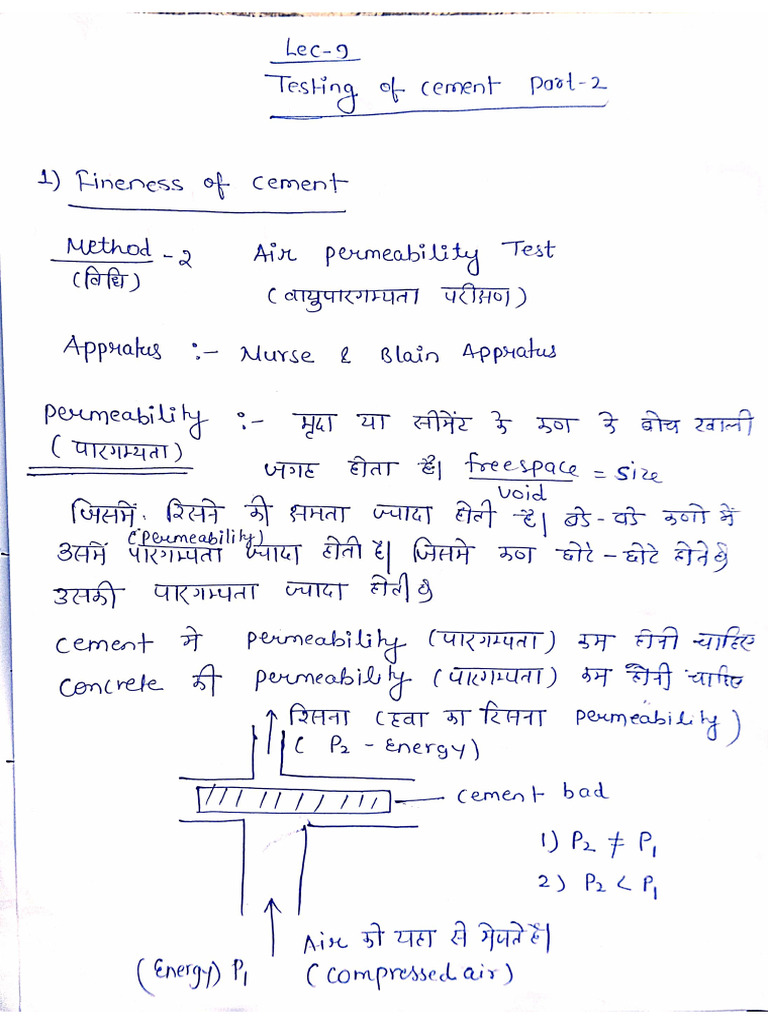 Lec-9
Testing of cement Part-2
1) Fineness of cement
Method - 2 Air Permeability Test
(विधि) (वायुपारगम्यता परीक्षण)
Appratus :- Nurse & Blain Appratus
Permeability :- मृदा या सीमेंट के कण के बीच खाली
(पारगम्यता) जगह होता है। freespace = Size
void
जिसमें रिसने की क्षमता ज्यादा होती है। बडे-बडे कणो में
(Permeability)
उसमें पारगम्यता ज्यादा होती है। जिसमे कण छोटे-छोटे होते है
उसकी पारगम्यता ज्यादा होती है
cement मे permeability (पारगम्यता) कम होनी चाहिए
Concrete की permeability (पारगम्यता) कम होनी चाहिए
रिसना (हवा का रिसना Permeability)
(P2 - Energy)
cement bad
1) P2 ≠ P1
2) P2 < P1
Air को यहा से भेजते है।
(Energy) P1 (Compressed air)